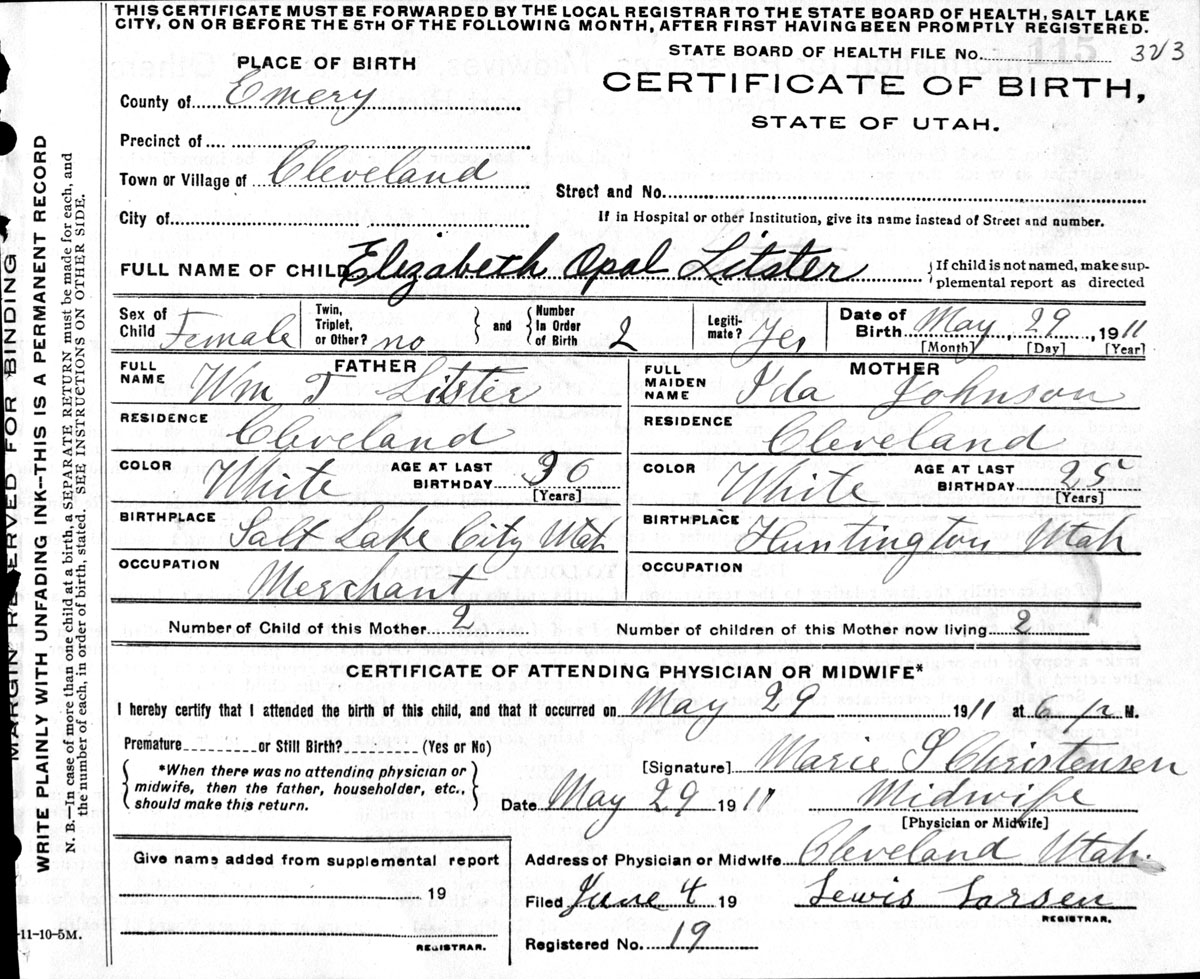 THIS CERTIFICATE MUST BE FORWARDED BY THE LOCAL REGISTRAR TO THE STATE BOARD OF HEALTH, SALT LAKE
CITY, ON OR BEFORE THE 5TH OF THE FOLLOWING MONTH, AFTER FIRST HAVING BEEN PROMPTLY REGISTERED.
STATE BOARD OF HEALTH FILE No. 115 323
PLACE OF BIRTH
CERTIFICATE OF BIRTH,
STATE OF UTAH.
County of Emery
Precinct of
Town or Village of Cleveland
Street and No.
City of
If in Hospital or other Institution, give its name instead of Street and number.
FULL NAME OF CHILD Elizabeth Opal Litster
If child is not named, make sup-
plemental report as directed
Sex of Child Female Twin, Triplet, or Other? no and Number In Order of Birth 2 Legiti-mate? Yes Date of Birth May 29, 1911
[Month] [Day] [Year]
FATHER MOTHER
FULL NAME Wm T Litster FULL MAIDEN NAME Ida Johnson
RESIDENCE Cleveland RESIDENCE Cleveland
COLOR White AGE AT LAST BIRTHDAY 36 [Years] COLOR White AGE AT LAST BIRTHDAY 25 [Years]
BIRTHPLACE Salt Lake City Utah BIRTHPLACE Huntington Utah
OCCUPATION Merchant OCCUPATION
Number of Child of this Mother 2 Number of children of this Mother now living 2
CERTIFICATE OF ATTENDING PHYSICIAN OR MIDWIFE*
I hereby certify that I attended the birth of this child, and that it occurred on May 29 1911 at 6 M.
Premature or Still Birth? (Yes or No)
*When there was no attending physician or
midwife, then the father, householder, etc.,
should make this return.
[Signature] Marie S Christensen
Date May 29 1911 Midwife
[Physician or Midwife]
Give name added from supplemental report
19
REGISTRAR.
Address of Physician or Midwife Cleveland Utah.
Filed June 4 19 Lewis Larsen
REGISTRAR.
Registered No. 19
MARGIN RESERVED FOR BINDING
WRITE PLAINLY WITH UNFADING INK--THIS IS A PERMANENT RECORD
N. B.--In case of more than one child at a birth, a SEPARATE RETURN must be made for each, and
the number of each, in order of birth, stated. SEE INSTRUCTIONS ON OTHER SIDE.
-11-10-5M.